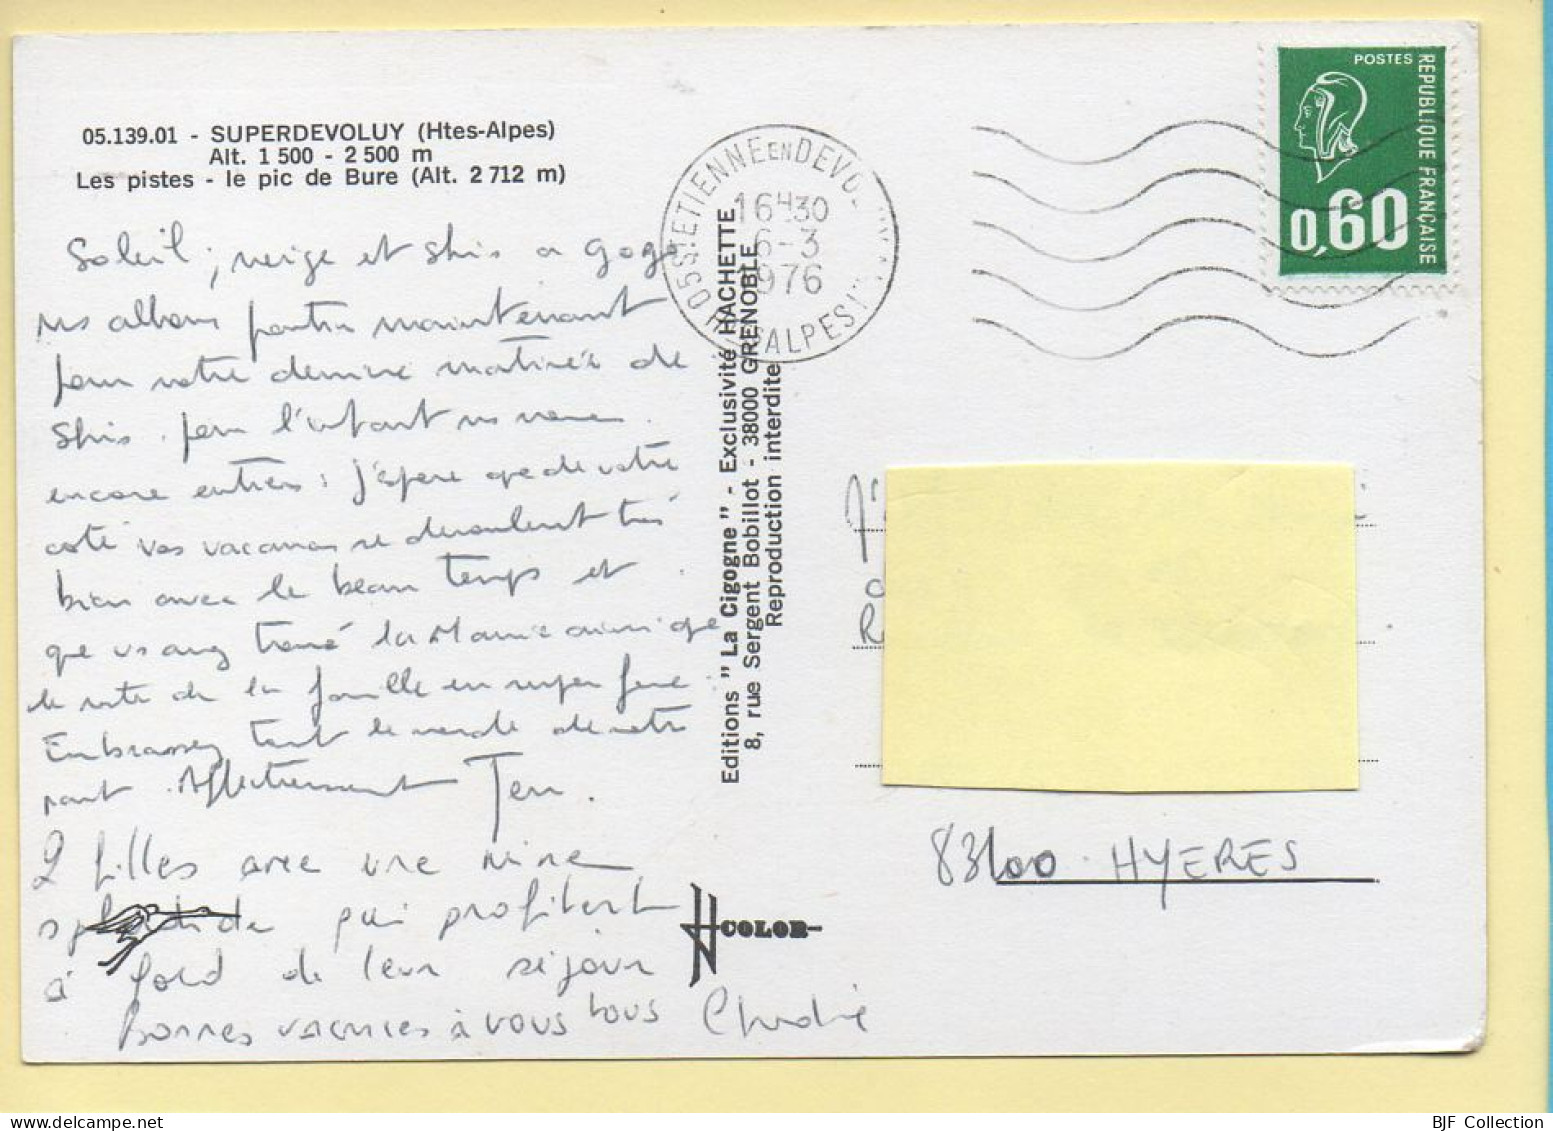 05.139.01 - SUPERDEVOLUY (Htes-Alpes)
Alt. 1 500 - 2 500 m
Les pistes - le pic de Bure (Alt. 2 712 m)
Soleil ; neige et skis a gogo
ns allons partir maintenant
pour notre dernière matinée de
skis. pour l'instant ns
encore entiers : j'espère que de votre
coté vos vacances se deroulent très
bien avec le beau temps et
que vs avez trouvé la Mamie ainsi que
le reste de la famille en super forme
Embrassez tout le monde de notre
part. Affectueusement
2 filles avec une mine
splendide qui profitent
à fond de leur séjour
Bonnes vacances à vous tous
Editions "La Cigogne" - Exclusivité HACHETTE
8, rue Sergent Bobillot - 38000 GRENOBLE
Reproduction interdite
COLOR
05 ST ETIENNE EN DEVO
16H30
6-3
1976
ALPES
POSTES
REPUBLIQUE FRANÇAISE
0,60
83400 HYERES
BJF Collection